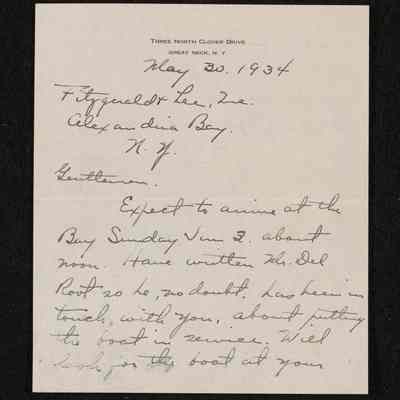 THREE NORTH CLOVER DRIVE
GREAT NECK, N. Y.
May 30. 1934
Fitzgerald & Lee, Inc.
Alexandria Bay.
N. Y.
Gentlemen.
Expect to arrive at the
Bay Sunday Jun 3. about
noon. Have written Mr. Del
Root so he, no doubt, has been in
touch, with you, about putting
the boat in service. Will
look for the boat at your